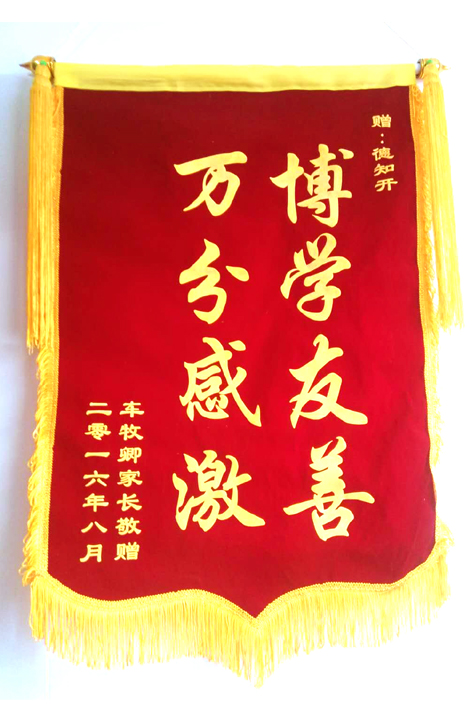 赠：德知开
博学友善
万分感激
车牧卿家长敬赠
二零一六年八月